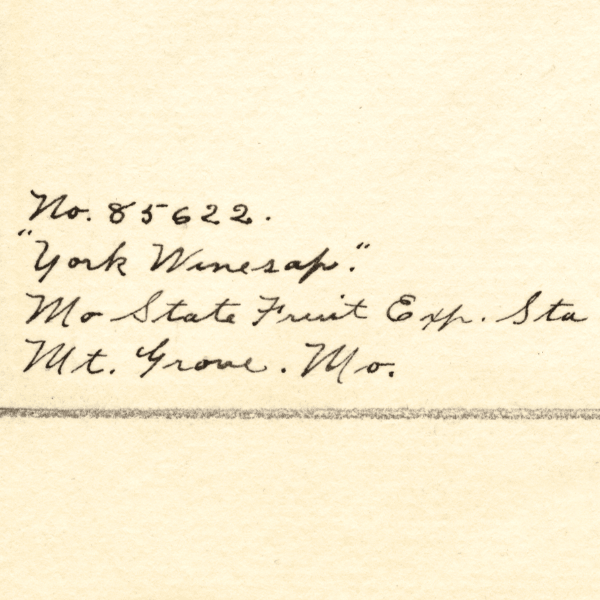 No. 85622.
"York Winesap."
Mo State Fruit Exp. Sta
Mt. Grove. Mo.